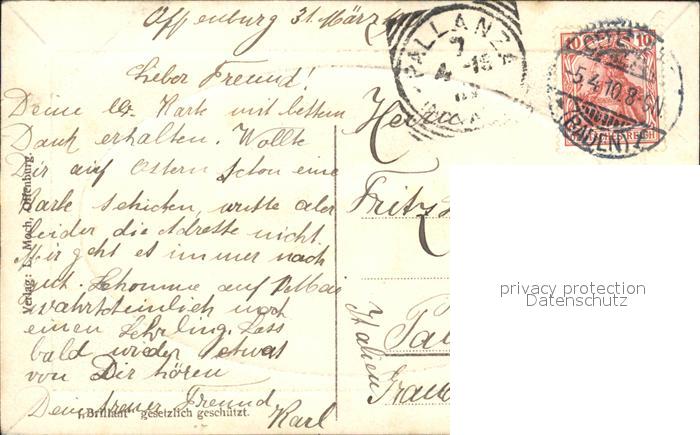 Offenburg 31. März
Lieber Freund!
Deine Karte mit bestem
Dank erhalten. Wollte
Dir auf Ostern schon eine
Karte schicken, wusste aber
leider die Adresse nicht.
Mir geht es immer noch
gut. Komme auf
wahrscheinlich noch
einen Lehrling. Lass
bald wieder etwas
von Dir hören
Dein treuer Freund
Karl
Verlag: L. Moch, Offenburg.
"Brillant" gesetzlich geschützt.
Herrn
Fritz
Italien
PALLANZA
7
4 - 15
10 10
5.4.10.8-9N
(BADEN)
privacy protection
Datenschutz